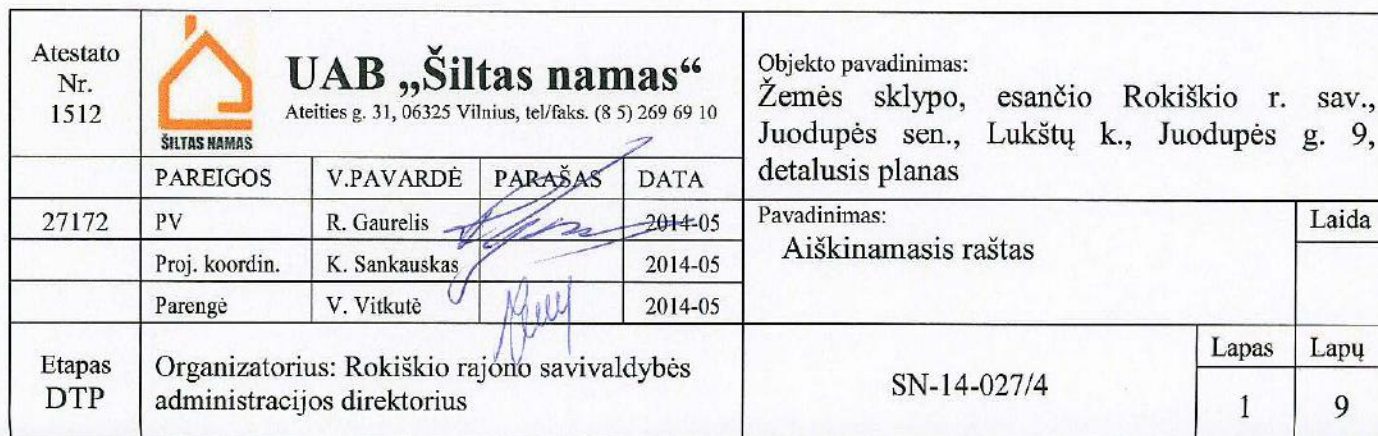 Atestato
Nr.
1512
ŠILTAS NAMAS
UAB „Šiltas namas“
Ateities g. 31, 06325 Vilnius, tel/faks. (8 5) 269 69 10
Objekto pavadinimas:
Žemės sklypo, esančio Rokiškio r. sav.,
Juodupės sen., Lukštų k., Juodupės g. 9,
detalusis planas
PAREIGOS V.PAVARDĖ PARAŠAS DATA
27172 PV R. Gaurelis 2014-05
Proj. koordin. K. Sankauskas 2014-05
Parengė V. Vitkutė 2014-05
Pavadinimas:
Aiškinamasis raštas
Laida
Etapas
DTP
Organizatorius: Rokiškio rajono savivaldybės
administracijos direktorius
SN-14-027/4
Lapas Lapų
1 9